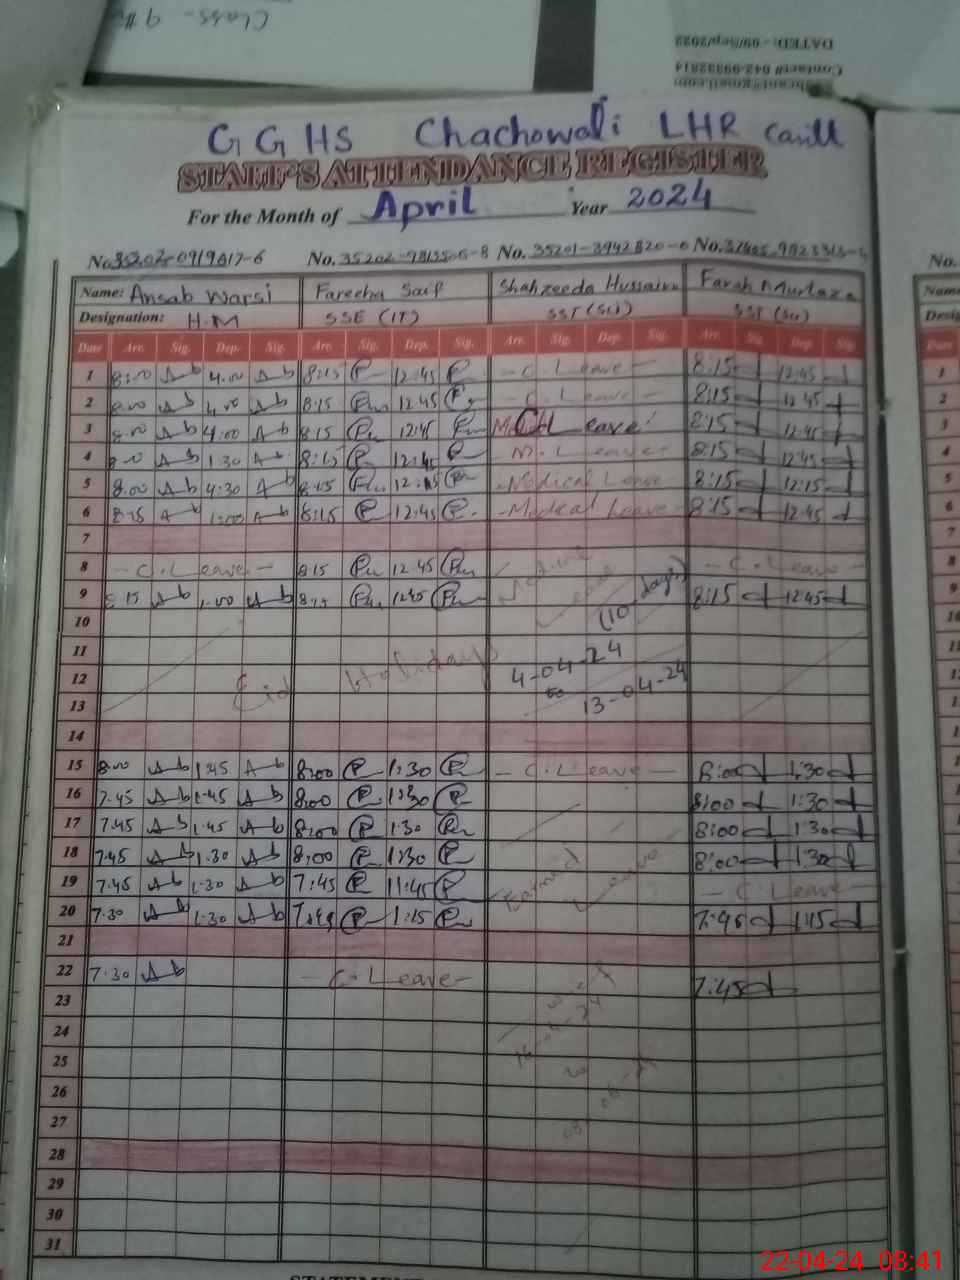 Class - 9th
DATED: - 09/Sep/2022
Contact# 042-99332814
G G H S Chachowali LHR Cantt
STAFF'S ATTENDANCE REGISTER
For the Month of April Year 2024
No. 35202-0919617-6 No. No. 35201-3942820-0 No.
Name: Ansab Warsi Fareeha Saif Shahzeeda Hussain Farah Murtaza
Designation: H.M SSE (IT) SST (Sci) SST (Sc)
Date Arr. Sig. Dep. Sig. Arr. Sig. Dep. Sig. Arr. Sig. Dep. Sig. Arr. Sig. Dep. Sig.
1 8:00 Ab 4.00 Ab 8:15 12:45 - C. Leave - 8:15 12:45
2 8.00 Ab 4.00 Ab 8:15 12:45 - C. Leave - 8:15 12:45
3 8.00 Ab 4:00 Ab 8:15 12:45 Leave 8:15 12:45
4 8.0 Ab 1:30 Ab 8:15 12:45 M. Leave - 8:15 12:45
5 8.00 Ab 4:30 Ab 8:15 12:45 - Medical Leave - 8:15 12:15
6 8:15 Ab 1:00 Ab 8:15 12:45 - Medical Leave - 8:15 12:45
7
8 - C. Leave - 8:15 12:45 - C. Leave -
9 8:15 Ab 1:00 Ab 8:15 12:45 (10 days) 8:15 12:45
10
11
12 Eid Holidays 4-04-24
to
13 13-04-24
14
15 8:00 Ab 1:45 Ab 8:00 1:30 - C. Leave - 8:00 1:30
16 7.45 Ab 1.45 Ab 8:00 1:30 8:00 1:30
17 7.45 Ab 1.45 Ab 8:00 1:30 8:00 1:30
18 7.45 Ab 1.30 Ab 8:00 1:30 8:00 1:30
19 7.45 Ab 1.30 Ab 7:45 11:45 Earned Leave - C. Leave
20 7.30 Ab 1.30 Ab 7:45 1:15 7:45 1:15
21
22 7.30 Ab - C. Leave - 7:45
23
24
25
26
27
28
29
30
31
22-04-24 08:41
No.
Name
Desig
Date
1
2
3
4
5
6
7
8
9
10
11
12
13